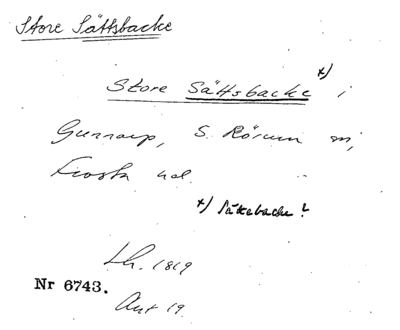 Store Sättsbacke
Store Sättsbacke x) i
Gunnarp, S. Rörum sn,
Frosta hd.
x) Sättebacke?
Lh. 1819
Nr 6743.
Ant 19